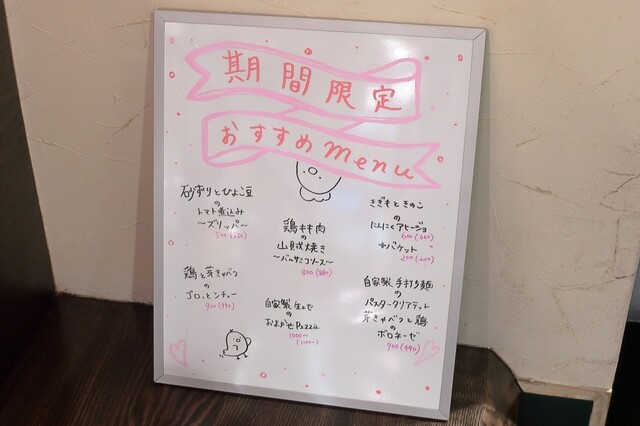 期間限定
おすすめmenu
砂ずりとひよこ豆
の
トマト煮込み
〜ズリッパ〜
500(550)
鶏もも肉
の
山賊焼き
〜バルサミコソース〜
800(880)
きぎもときのこ
の
にんにくアヒージョ
600(660)
+バケット
200(220)
鶏と芽きゃべつ
の
ゴロッとシチュー
900(990)
自家製生地
の
おまかせPizza
1000〜
(1100〜)
自家製手打ち麺
の
パスタ―タリアテッレ
芽きゃべつと鶏
の
ボロネーゼ
900(990)